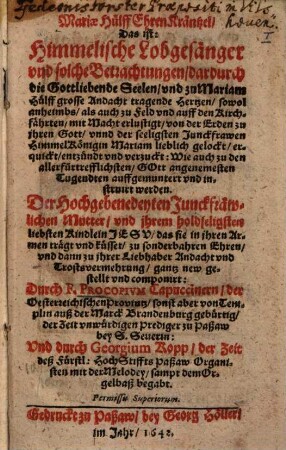 Mariæ Hülff Ehren Kräntzel/
Das ist:
Himmelische Lobgesänger
vnd solche Betrachtungen/ dardurch
die Gottliebende Seelen/ vnd zu Mariam
Hülff grosse Andacht tragende Hertzen/ sowol
anheimbs/ als auch zu Feld vnd auff den Kirch-
fährten/ mit Macht erlustigt/ von der Erden zu
jhren Gott/ vnnd der seeligsten Junckfrawen
Himmel Königin Mariam lieblich gelockt/ er-
quickt/ entzündt vnd verzuckt: Wie auch zu den
allerfürtrefflichsten/ GOtt angenemesten
Tugendten auffgemuntert vnd in-
struirt werden.
Der Hochgebenedeyten Junckfräw-
lichen Mutter/ vnd jhrem holdseligsten
liebsten Kindlein JESV/ das sie in jhren
armen trägt vnd küsset/ zu sonderbahren Ehren/
vnd dann zu jhrer Liebhaber Andacht vnd
Trostsvermehrung/ gantz new ge-
stellt vnd componirt:
Durch R. PROCOPIVM Capuccinern/ der
Oesterreichischen Provintz/ sonst aber von Tem-
plin auß der Marck Brandenburg gebürtig/
der Zeit vnwürdigen Prediger zu Paßaw
bey S. Seuerin:
Vnd durch Georgium Kopp/ der Zeit
deß Fürstl: Hoch Stiffts Paßaw Organi-
sten mit der Melodey/ sampt dem Or-
gelbaß begabt.
Permissu Superiorum.
Gedruckt zu Paßaw/ bey Georg Höller/
im Jahr/ 1642.